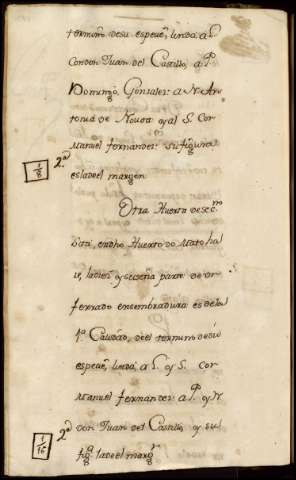 termin͠o desu espeue͠, linda, a L.
Con don Juan del Castillo, a P.
Domingo, Gonsalez a N. An-
tonia de Nouoa y al S. Con
Manuel fernandez Su figura
esladel margen
1/8 2ª
Otra Huerta de sec.no
en dho Huerto do Mato
y sesema parte de un
ferrado ensembradura es dela
1ª Calidad, del termino desu
espeue͠, linda, a L. y S. Con
Manuel fernandez a P. y N.
1/16 2ª
don Juan del Castillo y su
figª ladel marg.n